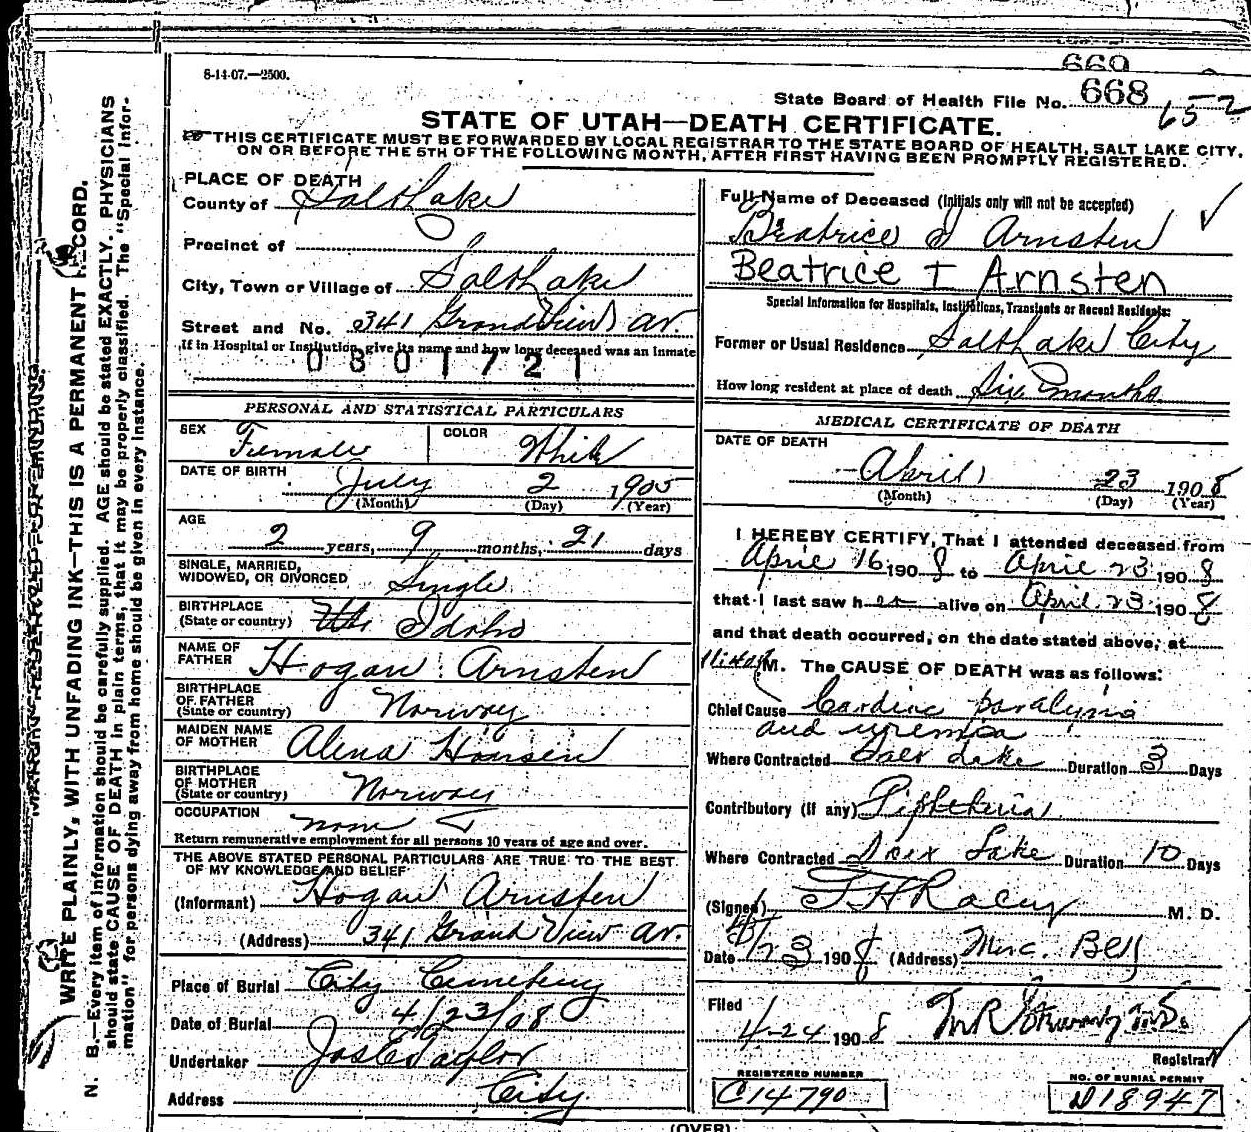 8-14-07.—2500.
660
State Board of Health File No. 668 652
STATE OF UTAH—DEATH CERTIFICATE.
THIS CERTIFICATE MUST BE FORWARDED BY LOCAL REGISTRAR TO THE STATE BOARD OF HEALTH, SALT LAKE CITY,
ON OR BEFORE THE 5TH OF THE FOLLOWING MONTH, AFTER FIRST HAVING BEEN PROMPTLY REGISTERED.
WRITE PLAINLY, WITH UNFADING INK—THIS IS A PERMANENT RECORD.
N. B.—Every item of information should be carefully supplied. AGE should be stated EXACTLY. PHYSICIANS
should state CAUSE OF DEATH in plain terms, that it may be properly classified. The "Special Infor-
mation" for persons dying away from home should be given in every instance.
PLACE OF DEATH
County of Salt Lake
Precinct of
City, Town or Village of Salt Lake
Street and No. 341 Grand View Av.
If in Hospital or Institution, give its name and how long deceased was an inmate
0801721
PERSONAL AND STATISTICAL PARTICULARS
SEX Female COLOR White
DATE OF BIRTH July 2 1905
(Month) (Day) (Year)
AGE
2 years, 9 months, 21 days
SINGLE, MARRIED,
WIDOWED, OR DIVORCED Single
BIRTHPLACE
(State or country) Idaho
NAME OF
FATHER Hogan Arnsten
BIRTHPLACE
OF FATHER
(State or country) Norway
MAIDEN NAME
OF MOTHER Alena Hansen
BIRTHPLACE
OF MOTHER
(State or country) Norway
OCCUPATION none
Return remunerative employment for all persons 10 years of age and over.
THE ABOVE STATED PERSONAL PARTICULARS ARE TRUE TO THE BEST
OF MY KNOWLEDGE AND BELIEF
(Informant) Hogan Arnsten
(Address) 341 Grand View Av.
Place of Burial City Cemetery
Date of Burial 4/23/08
Undertaker Jos E Taylor
Address City
Full Name of Deceased (Initials only will not be accepted)
Beatrice I Arnsten
Beatrice I Arnsten
Special Information for Hospitals, Institutions, Transients or Recent Residents:
Former or Usual Residence Salt Lake City
How long resident at place of death Six months
MEDICAL CERTIFICATE OF DEATH
DATE OF DEATH
April 23 1908
(Month) (Day) (Year)
I HEREBY CERTIFY, That I attended deceased from
April 16 1908 to April 23 1908
that I last saw her alive on April 23 1908
and that death occurred, on the date stated above, at
M. The CAUSE OF DEATH was as follows:
Chief Cause Cardiac paralysis
and uremia
Where Contracted Salt Lake Duration 3 Days
Contributory (if any) Diphtheria
Where Contracted Salt Lake Duration 10 Days
(Signed) M. D.
Date 4/23 1908 (Address) Merc. Blg
Filed
4-24 1908
Registrar
REGISTERED NUMBER
C14790
NO. OF BURIAL PERMIT
D18947
(OVER)